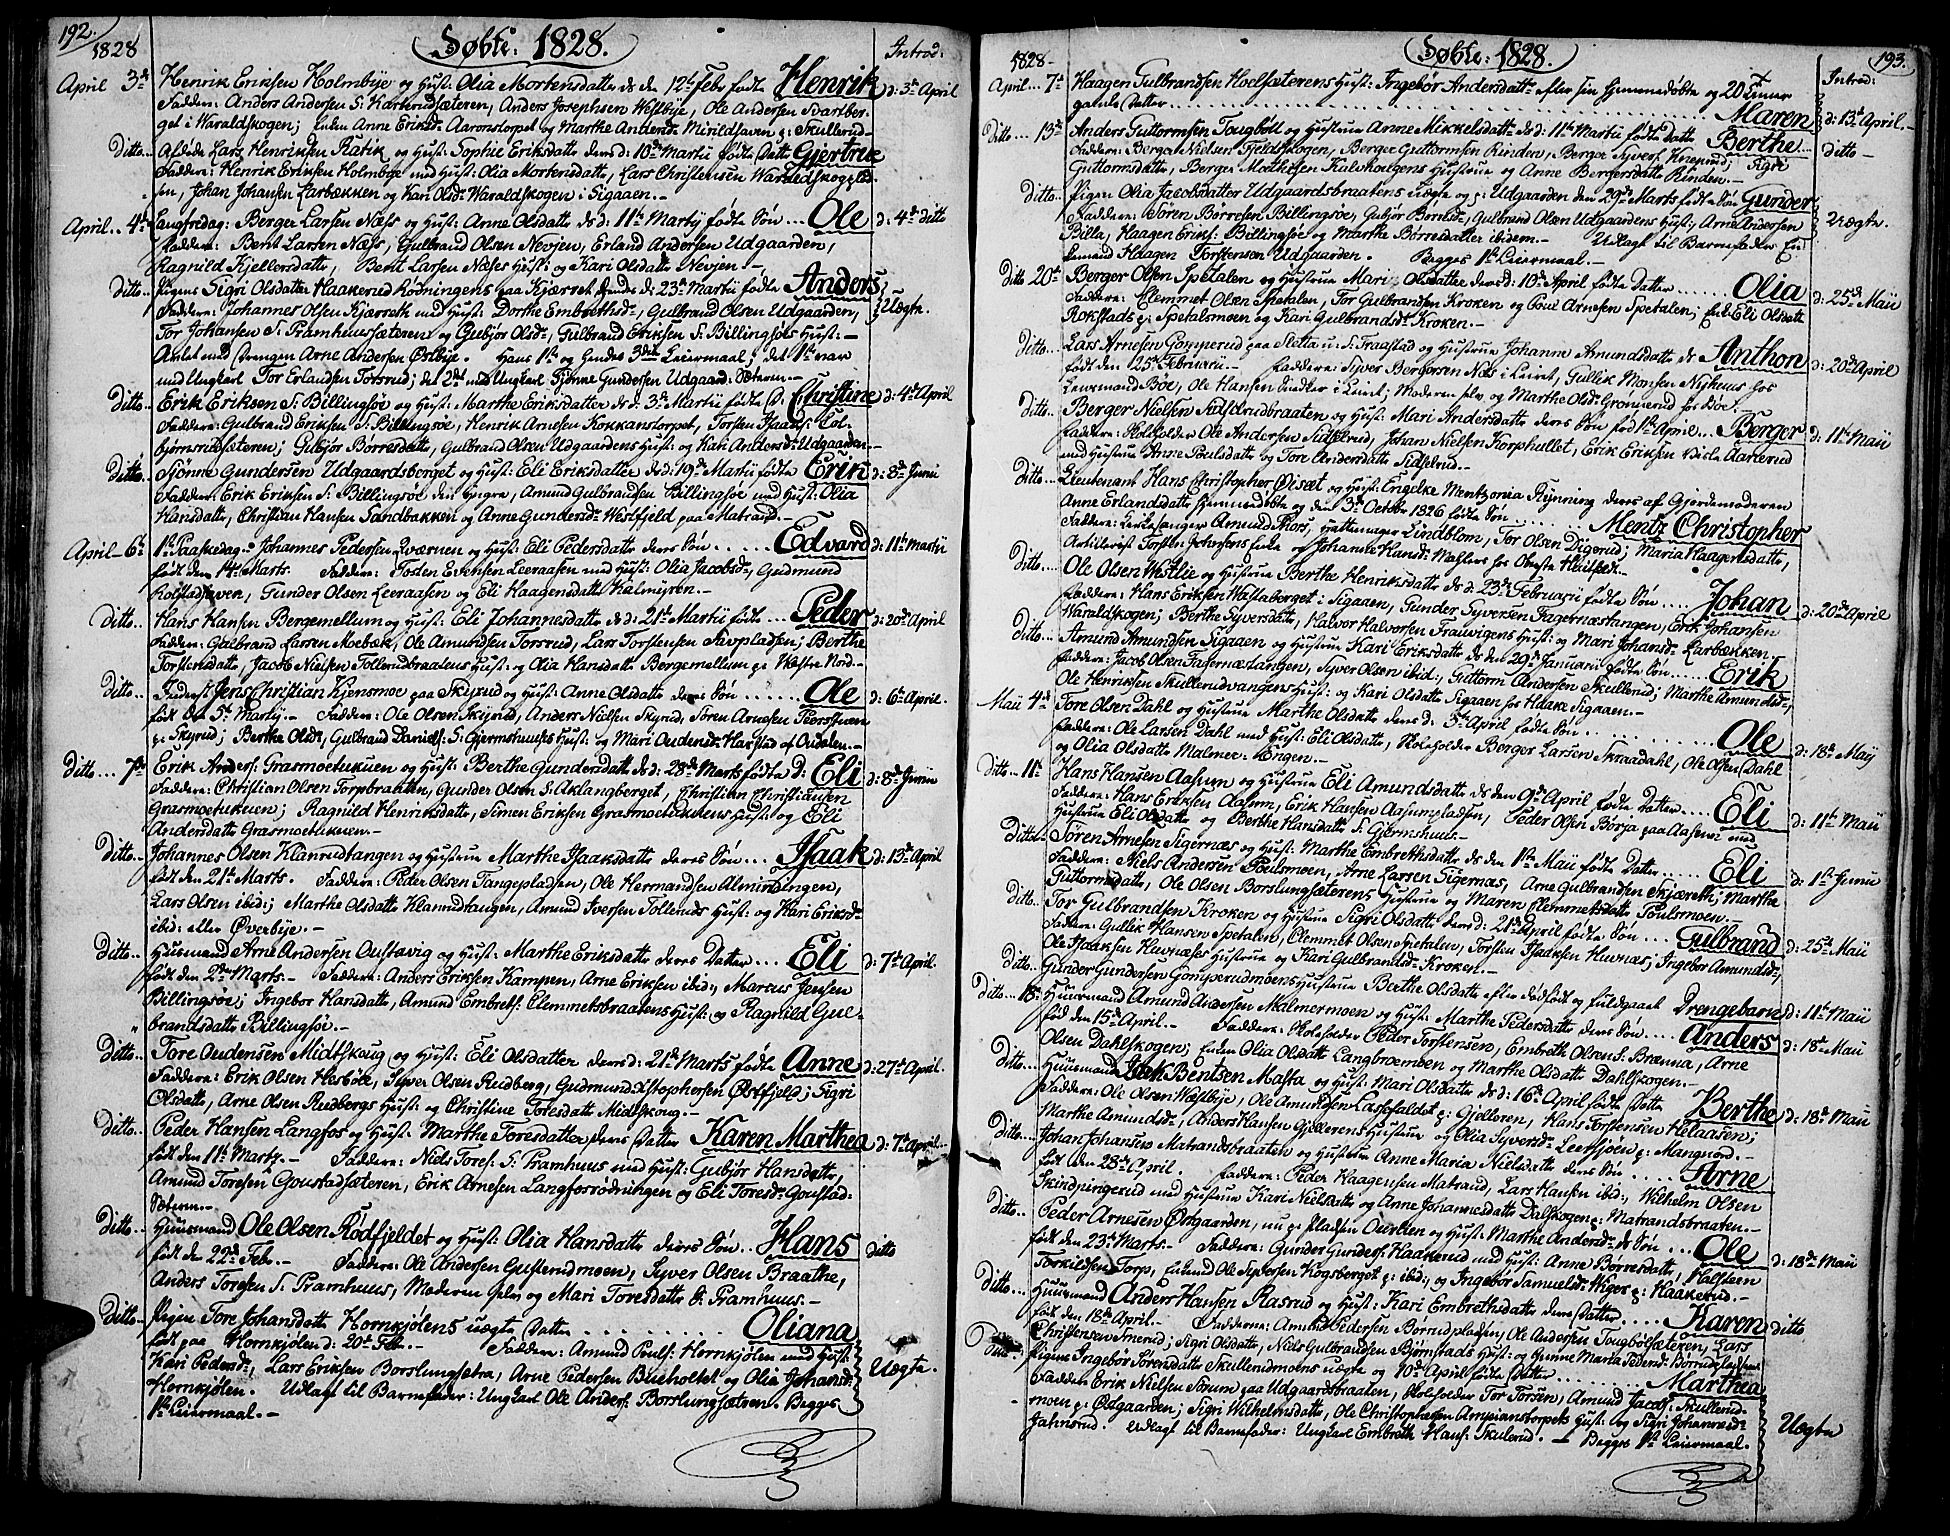 192.
1828
Døbte: 1828.
Introd:
April 3de Henrik Eriksen Holmbye og Hust: Olia Mortensdatter ds den 12te Febr fødte Henrik d: 3de April
Faddere: Anders Andersen S: Anders Josephsen Westbye, Ole Andersen Svartber-
get i Waraldskogen; Enken Anne Eriksd: Aaronstorpet og Marthe Andersd:
Ditto.. Afdøde Lars Henriksen og Hust: Sophie Eriksdatter deres d: 10de Martii fødte Datter Gjertrue
Faddere: Henrik Eriksen Holmbye med Hust: Olia Mortensdatter, Lars Christensen
sen, Johan Johansen Larbækken og Kari Olsd: Waraldskogen i Sigaaen.
April.. 4de Langfredag: Berger Larsen Næss og Hust: Anne Olsdatter ds d: 11te Martij fødte Søn ... Ole d: 4de ditto
Faddere: Bent Larsen Næss, Gulbrand Olsen Nevjen, Erland Andersen Udgaarden,
Ragnild Kjellersdatter, Bent Larsen Næses Hust: og Kari Olsdatter Nevjen.
Ditto.. Pigens Sigri Olsdatter Haakerud paa Kjærret d: 23de Martii fødte Anders Uægte.
Faddere: Johannes Olsen Kjærreth med Hust: Dorthe Embrethsd:, Gulbrand Olsen Udgaarden,
Tor Johansen S: Pramhuussæteren og Gubjør Olsd:, Gulbrand Eriksen S: Billingsøes Hust:
Avlet med Drengen Arne Andersen Østbye. Hans 1ste og hendes 3die Leiermaal; det 1ste var
med Ungkarl Tor Erlandsen Torsrud; det 2det med Ungkarl Sjønne Gundersen Udgaard: Sæteren.
Ditto.. Erik Eriksen S: Billingsøe og Hust: Marthe Eriksdatter ds d: 3de Martii fødte D: Christine d: 4de April
Faddere: Gulbrand Eriksen S: Billingsøe, Henrik Arnesen Kokkanstorpet, Torsten Isaachs: Tol-
bjørnsrudsæteren; Gubjør Børresdatter, Gulbrand Olsen Udgaardens Hust: og Kari Andersd: Udgaarden.
Ditto.. Sjønne Gundersen Udgaardsberget og Hust: Eli Eriksdatter ds d: 19de Martii fødte Erik d: 8de Junii
Faddere: Erik Eriksen S: Billingsøe den yngre, Amund Gulbrandsen Billingsøe med Hust: Olia
Hansdatter, Christian Hansen Sandbakken og Anne Gundersd: Westfjeld paa Matrand.
April 6te 1ste Paaskedag: Johannes Pedersen Qværnen og Hust: Eli Pedersdatter deres Søn ..... Edvard d: 11te Martii
født den 14de Marts. Faddere: Tosten Evensen Leeraasen med Hust: Olia Jacobsd:, Gudmund
Kolstadhaven, Gunder Olsen Leeraasen og Eli Haagensdatter Kalmyren.
Ditto.. Hans Hansen Bergemellum og Hust: Eli Johannesdatter ds d: 21de Martii fødte ... Peder d: 20de April
Faddere: Gulbrand Larsen Moebæk, Ole Amundsen Torsrud, Lars Torstensen Sævpladsen; Berthe
Torstensdatter, Jacob Nielsen Tollerudbraatens Hust: og Olia Hansdatter Bergemellum
Ditto.. Jens Christian Kjensmoe paa Skyrud og Hust: Anne Olsdatter deres Søn ....... Ole d: 6te April.
født den 5te Martij. Faddere: Ole Olsen Skyrud, Anders Nielsen Skyrud, Søren Arnesen
Skyrud; Berthe Olsd:, Gulbrand Daniels: S: Gjermshuuses Hust: og Mari Oudensd: Harstad af Oudalen.
Ditto... 7de Erik Anders: Grasmoetukuen og Hust: Berthe Gundersdatter ds d: 28de Marts fødte D: Eli d: 8de Junii
Faddere: Christian Olsen Torpbraaten, Gunder Olsen S: Aklangberget, Christian Christiansen
Grasmoetukuen; Ragnild Henriksdatter, Simen Eriksen Grasmoetukuens Hust: og Eli
Andersdatter Grasmoetukuen.
Ditto.. Johannes Olsen Klanrudtangen og Hustrue Marthe Isaaksdatter deres Søn ... Isaak d: 13de April
født den 21de Marts. Faddere: Peder Olsen Tangepladsen, Ole Hermandsen Almindingen,
Lars Olsen ibid:; Marthe Olsdatter Klanrudtangen, Amund Iversen Tolleruds Hust: og Kari Eriksd:
ibid: eller Øverbye.
Ditto.. Huusmand Arne Andersen Oustavig og Hust: Marthe Eriksdatter deres Datter ... Eli d: 7de April.
født den 2den Marts. Faddere: Anders Eriksen Kampen, Arne Eriksen ibid:, Marcus Jensen
Billingsøe; Ingebor Hansdatter, Amund Embrets: Clemmetsbraatens Hust: og Ragnild Gul-
brandsdatter Billingsøe.
Ditto.. Tore Oudensen Midtskoug og Hust: Eli Olsdatter deres d: 21de Marts fødte Anne d: 27de April.
Faddere: Erik Olsen Hesbøle, Syver Olsen Rudberg, Gudmund Xstophersen Østfjeld; Sigri
Olsdatter, Arne Olsen Rudbergs Hust: og Christine Toresdatter Midtskoug.
Ditto.. Peder Hansen Langfos og Hust: Marthe Toresdatter deres Datter Karen Marthea d: 7de April.
født den 11te Martz. Faddere: Niels Tores: S: Pramhuus med Hust: Gubjør Hansdatter,
Amund Toresen Goustadsæteren, Erik Arnesen Langfosrødningen og Eli Toresd: Goustad:
Sæteren.
Ditto.. Huusmand Ole Olsen Rødfjeldet og Hust: Olia Hansdatter deres Søn .. Hans ditto
født den 22de Feb. Faddere: Ole Andersen Gusterudmoen, Syver Olsen Braathe,
Anders Toresen S: Pramhuus, Moderen selv og Mari Toresdatter S: Pramhuus.
Ditto.. Pigen Tore Johansdatter Hornkjølens uægte Datter .......... Oliana Uægte.
født paa Hornkjølen d: 20de Feb. Faddere: Amund Pouls: Hornkjølen med Hust:
Kari Pedersd:, Lars Eriksen Borslungsætra, Arne Pedersen Bueholtet og Olia Johansd:
Hornkjølen. Udlagt til Barnefader: Ungkarl Ole Anders: Borslungsætren. Begges
1ste Leiermaal.
193.
1828
Døbte: 1828.
Introd:
April... 7de Haagen Gulbrandsen Hoelsæterens Hust: Ingebør Andersdatter efter sin hjemmedøbte og 20 Timer
gamle Datter ........ Maren d: 13de April.
Ditto... 13de Anders Guttormsen Tougbøll og Hustrue Anne Mikkelsdatter ds d: 11te Martii fødte Datter Berthe ditto
Faddere: Berger Nielsen Fjeldskogen, Berger Guttormsen Rinden, Berger Syvers: Knaprud; Sigri
Guttormsdatter, Berger Mathisen Kalsholgens Hustrue og Anne Bergersdatter Rinden.
Ditto.. Pigen Olia Jacobsdatter Udgaardsbraatens uægte og p: Udgaarden den 29de Marts fødte Søn Gunder Uægte.
Faddere: Søren Børresen Billingsøe, Gubjør Børresd:, Gulbrand Olsen Udgaardens Hust:, Arne Andersen
Billa, Haagen Eriks: Billingsøe og Marthe Børresdatter ibidem. Udlagt til Barnefader En-
kemand Haagen Torstensen Udgaarden. Begges 1ste Leiermaal.
Ditto 20de Berger Olsen Spetalen og Hustrue Mari Olsdatter deres d: 10de April fødte Datter ...... Olia d: 25de Maii
Faddere: Clemmet Olsen Spetalen, Tor Gulbrandsen Kroken og Poul Arnesen Spetalen; Enk: Eli Olsdatter
Rokstads p: Spetalsmoen og Kari Gulbrandsd: Kroken.
Ditto.. Lars Arnesen Gomperud paa Sletta u: S: Fraastad og Hustrue Johanne Amundsdatter ds Anthon d: 20de April
født den 25de Februarii. Faddere: Syver Bergersen Næs i Leiret, Gullik Monsen Nyhuus hos
Leensmand Boe, Ole Hansen Snedker i Leiret; Moderen selv og Marthe Olsd: Grønnerud hos Boe.
Ditto.. Berger Nielsen Sidselrudbraaten og Hustrue Mari Andersdatter deres Søn fød 1ste April... Berger d: 11te Maii
Faddere: Skoleholder Ole Andersen Sidselrud, Johan Nielsen Korphullet, Erik Eriksen Viele Aarlerud
med Hustrue Anne Poulsdatter og Tore Andersdatter Sidselrud.
Ditto.. Lieutenant Hans Christopher Øiseet og Hustrue Engelke Mentzonia Rynning deres af Gjordemoderen
Anne Erlandsdatter hjemmedøbte og den 3de October 1826 fødte Søn ..... Mentz Christopher
Faddere: Kirkesanger Amund Moss, Grettemager Lindblom, Tor Olsen Digerud; Maria Haagensdatter,
Artillerist Torsten Johnsens Enke og Johanne Knudsd:
Ditto.. Ole Olsen Westlie og Hustrue Berthe Henriksdatter ds d: 23de Februarii fødte Søn .... Johan d: 20de April
Faddere: Hans Eriksen Waftaberget i Sigaaen, Gunder Syversen Fagernæstangen, Erik Johansen
Waraldskogen; Berthe Syversdatter, Halvor Halvorsen Frauvigens Hust: og Mari Johansd: Larbækken.
Ditto.. Amund Amundsen Sigaaen og Hustrue Kari Eriksdatter ds den 29de Januarii fødte Søn..... Erik
Faddere: Jacob Olsen Fagernæstangen, Syver Olsen ibid:, Guttorm Andersen Skullerud; Marthe Amundsd:,
Ole Henriksen Skullerudvangens Hust: og Kari Olsdatter Sigaaen hos Haak: Sigaaen.
Maii 4de Tore Olsen Dahl og Hustrue Marthe Olsdatter deres d: 5te April fødte Søn ........ Ole d: 18de Maij
Faddere: Ole Larsen Dahl med Hust: Eli Olsdatter, Skoleholder Berger Larsen Skraadahl, Ole Olsen Dahl
og Olia Olsdatter Malmer-Engen.
Ditto .. 11te Hans Hansen Aasum og Hustrue Eli Amundsdatter ds den 9de April fødte Datter.... Eli d: 11te Maii
Faddere: Hans Eriksen Aasum, Erik Hansen Aasumpladsen, Peder Olsen Børja paa Aasum med
Hustrue Eli Olsdatter og Berthe Hansdatter S: Gjermshuus.
Ditto.. Søren Arnesen Sigernæs og Hust: Marthe Embrethsdatter ds den 1ste Maii fødte Datter..... Eli d: 1ste Junii
Faddere: Niels Andersen Poulsmoen, Arne Larsen Sigernæs, Arne Gulbrandsen Skjæreth; Marthe
Guttormsdatter, Ole Olsen Borslungsæterens Hustrue og Maren Clemmetsdatter Poulsmoen.
Ditto.. Tor Gulbrandsen Kroken og Hustrue Sigri Olsdatter deres d: 21de April fødte Søn .... Gulbrand d: 25de Maii
Faddere: Gullek Hansen Spetalen, Clemmet Olsen Spetalen, Torsten Isaaksen Huvnæs; Ingebor Amundsd:,
Ole Isaaksen Huvnæses Hustrue og Kari Gulbrandsd: Kroken.
Ditto.. Gunder Gundersen Gomperudmoens Hustrue Berthe Olsdatter efter dødfødt og fuldgaaet Drengebarn d: 11te Maii
Ditto.. 18de Huusmand Amund Andersen Malmermoen og Hust: Marthe Pedersdatter deres Søn .... Anders d: 18de Maii
fød den 15de April. Faddere: Skoleholder Peder Torstensen, Embreth Olsen S: Brænna, Arne
Olsen Dahlskogen; Enken Olia Olsdatter Langbroemoen og Marthe Olsdatter Dahlskogen.
Ditto.. Huusmand Bentsen Masta og Hust: Mari Olsdatter ds d: 16de April fødte Datter Berthe d: 18de Maii
Faddere: Ole Olsen Wæstbye, Ole Amundsen Lassefaldet p: Gjelloren, Hans Torstensen Helaasen;
Marthe Amundsd:, Anders Hansen Gjellerens Hustrue og Olia Syversd: Leertjøen p: Mangnord.
Ditto.. Johan Johansen Matrandsbraaten og Hustrue Anne Maria Nielsdatter deres Søn ..... Arne
født den 28de April. Faddere: Peder Haagensen Matrand, Lars Hansen ibid:, Wilhelm Olsen
Skindpingerud med Hustrue Kari Nielsdatter og Anne Johannesdatter Dalskogen p: Matrandsbraaten.
Ditto.. Peder Arnesen Østgaarden, nu p: Pladsen Ouerken og Hust: Marthe Andersd: ds Søn ... Ole d: 18de Maii
født den 23de Marts. Faddere: Gunder Gunders: Haakerud med Hust: Anne Børresdatter, Halsteen
Torkildsen Torp, Enkemd Ole Syversen Kogsberget p: ibid:, og Ingebor Samuelsd: Wiger p: Haakerud.
Ditto.. Huusmand Anders Hansen Rasrud og Hust: Kari Embrethsdatter deres Datter..... Karen ditto
født den 18de April. Fadderne: Amund Pedersen Børrudpladsen, Ole Andersen Tougbølsæteren, Lars
Christensen Smerud; Sigri Olsdatter, Niels Gulbrandsen Bjørnstads Hust: og Gunne Marta Pedersd: Børrudpladsen.
Ditto.. Pigens Ingebør Sørensdatter Skullerudmoens uægte og 10de April fødte Datter ........ Marthea Uægte
Faddere: Erik Nielsen Sørum paa Udgaardsbraaten, Skoleholder Tor Torsen, Amund Jacobs: Skullerud-
moen p: Østgaarden; Sigri Wilhelmsdatter, Ole Christophersen Ampianstorpets Hust: og Sigri Johannesd:
Jahnsrud. Udlagt til Barnefader: Ungkarl Embreth Hans: Skulerud. Begges 1ste Leiermaal.